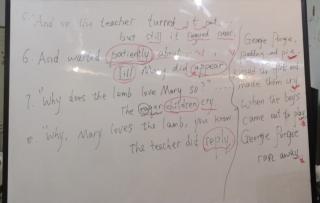 5. "And so the teacher turned it out
but still it
6. And waited patiently about
till Mary did appear
7. "Why does the lamb love Mary so?"
The eager children cry
8. "Why, Mary loves the lamb, you know
The teacher did reply
George Porgie,
pudding and pie
the girls and
made them cry
When the boys
came out to play
George Porgie
ran away